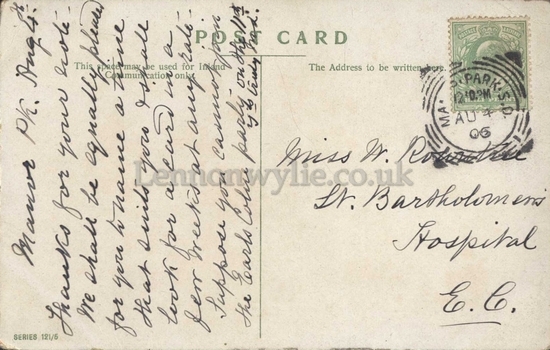 POST CARD
This space may be used for Inland
Communication only.
The Address to be written here.
Manor Pk. Aug 4th
Thanks for your note.
We shall be equally pleased
for you to name a time
that suits you & shall
look for a card in a
few weeks at any rate.
Suppose you cannot join
the Earls Colne party on the 11th
MA PARK. S.O
12.10PM
AU 4
06
Miss W.
St. Bartholomew's
Hospital
E.C.
SERIES 121/5
Lennonwylie.co.uk